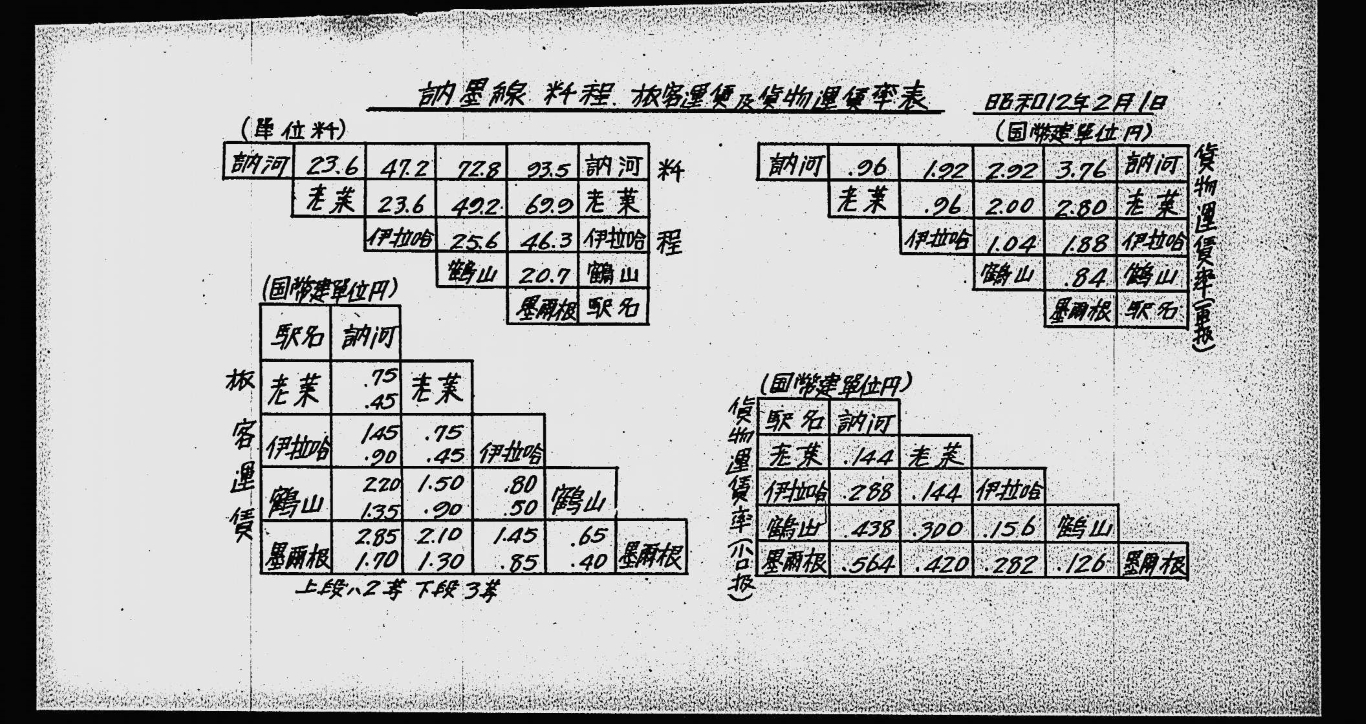 訥墨線 粁程 旅客運賃及貨物運賃率表
昭和12年2月1日
(單位粁)
訥河 23.6 47.2 72.8 93.5 訥河
老莱 23.6 49.2 69.9 老莱
伊拉哈 25.6 46.3 伊拉哈
鶴山 20.7 鶴山
墨爾根 駅名
粁程
(国幣建單位円)
訥河 .96 1.92 2.92 3.76 訥河
老莱 .96 2.00 2.80 老莱
伊拉哈 1.04 1.88 伊拉哈
鶴山 .84 鶴山
墨爾根 駅名
貨物運賃率(車扱)
(国幣建單位円)
旅客運賃
駅名 訥河
老莱 .75 老莱
.45
伊拉哈 1.45 .75 伊拉哈
.90 .45
鶴山 220 1.50 .80 鶴山
1.35 .90 .50
墨爾根 2.85 2.10 1.45 .65 墨爾根
1.70 1.30 .85 .40
上段ハ2等 下段3等
(国幣建單位円)
貨物運賃率(小口扱)
駅名 訥河
老莱 .144 老莱
伊拉哈 .288 .144 伊拉哈
鶴山 .438 .300 .156 鶴山
墨爾根 .564 .420 .282 .126 墨爾根